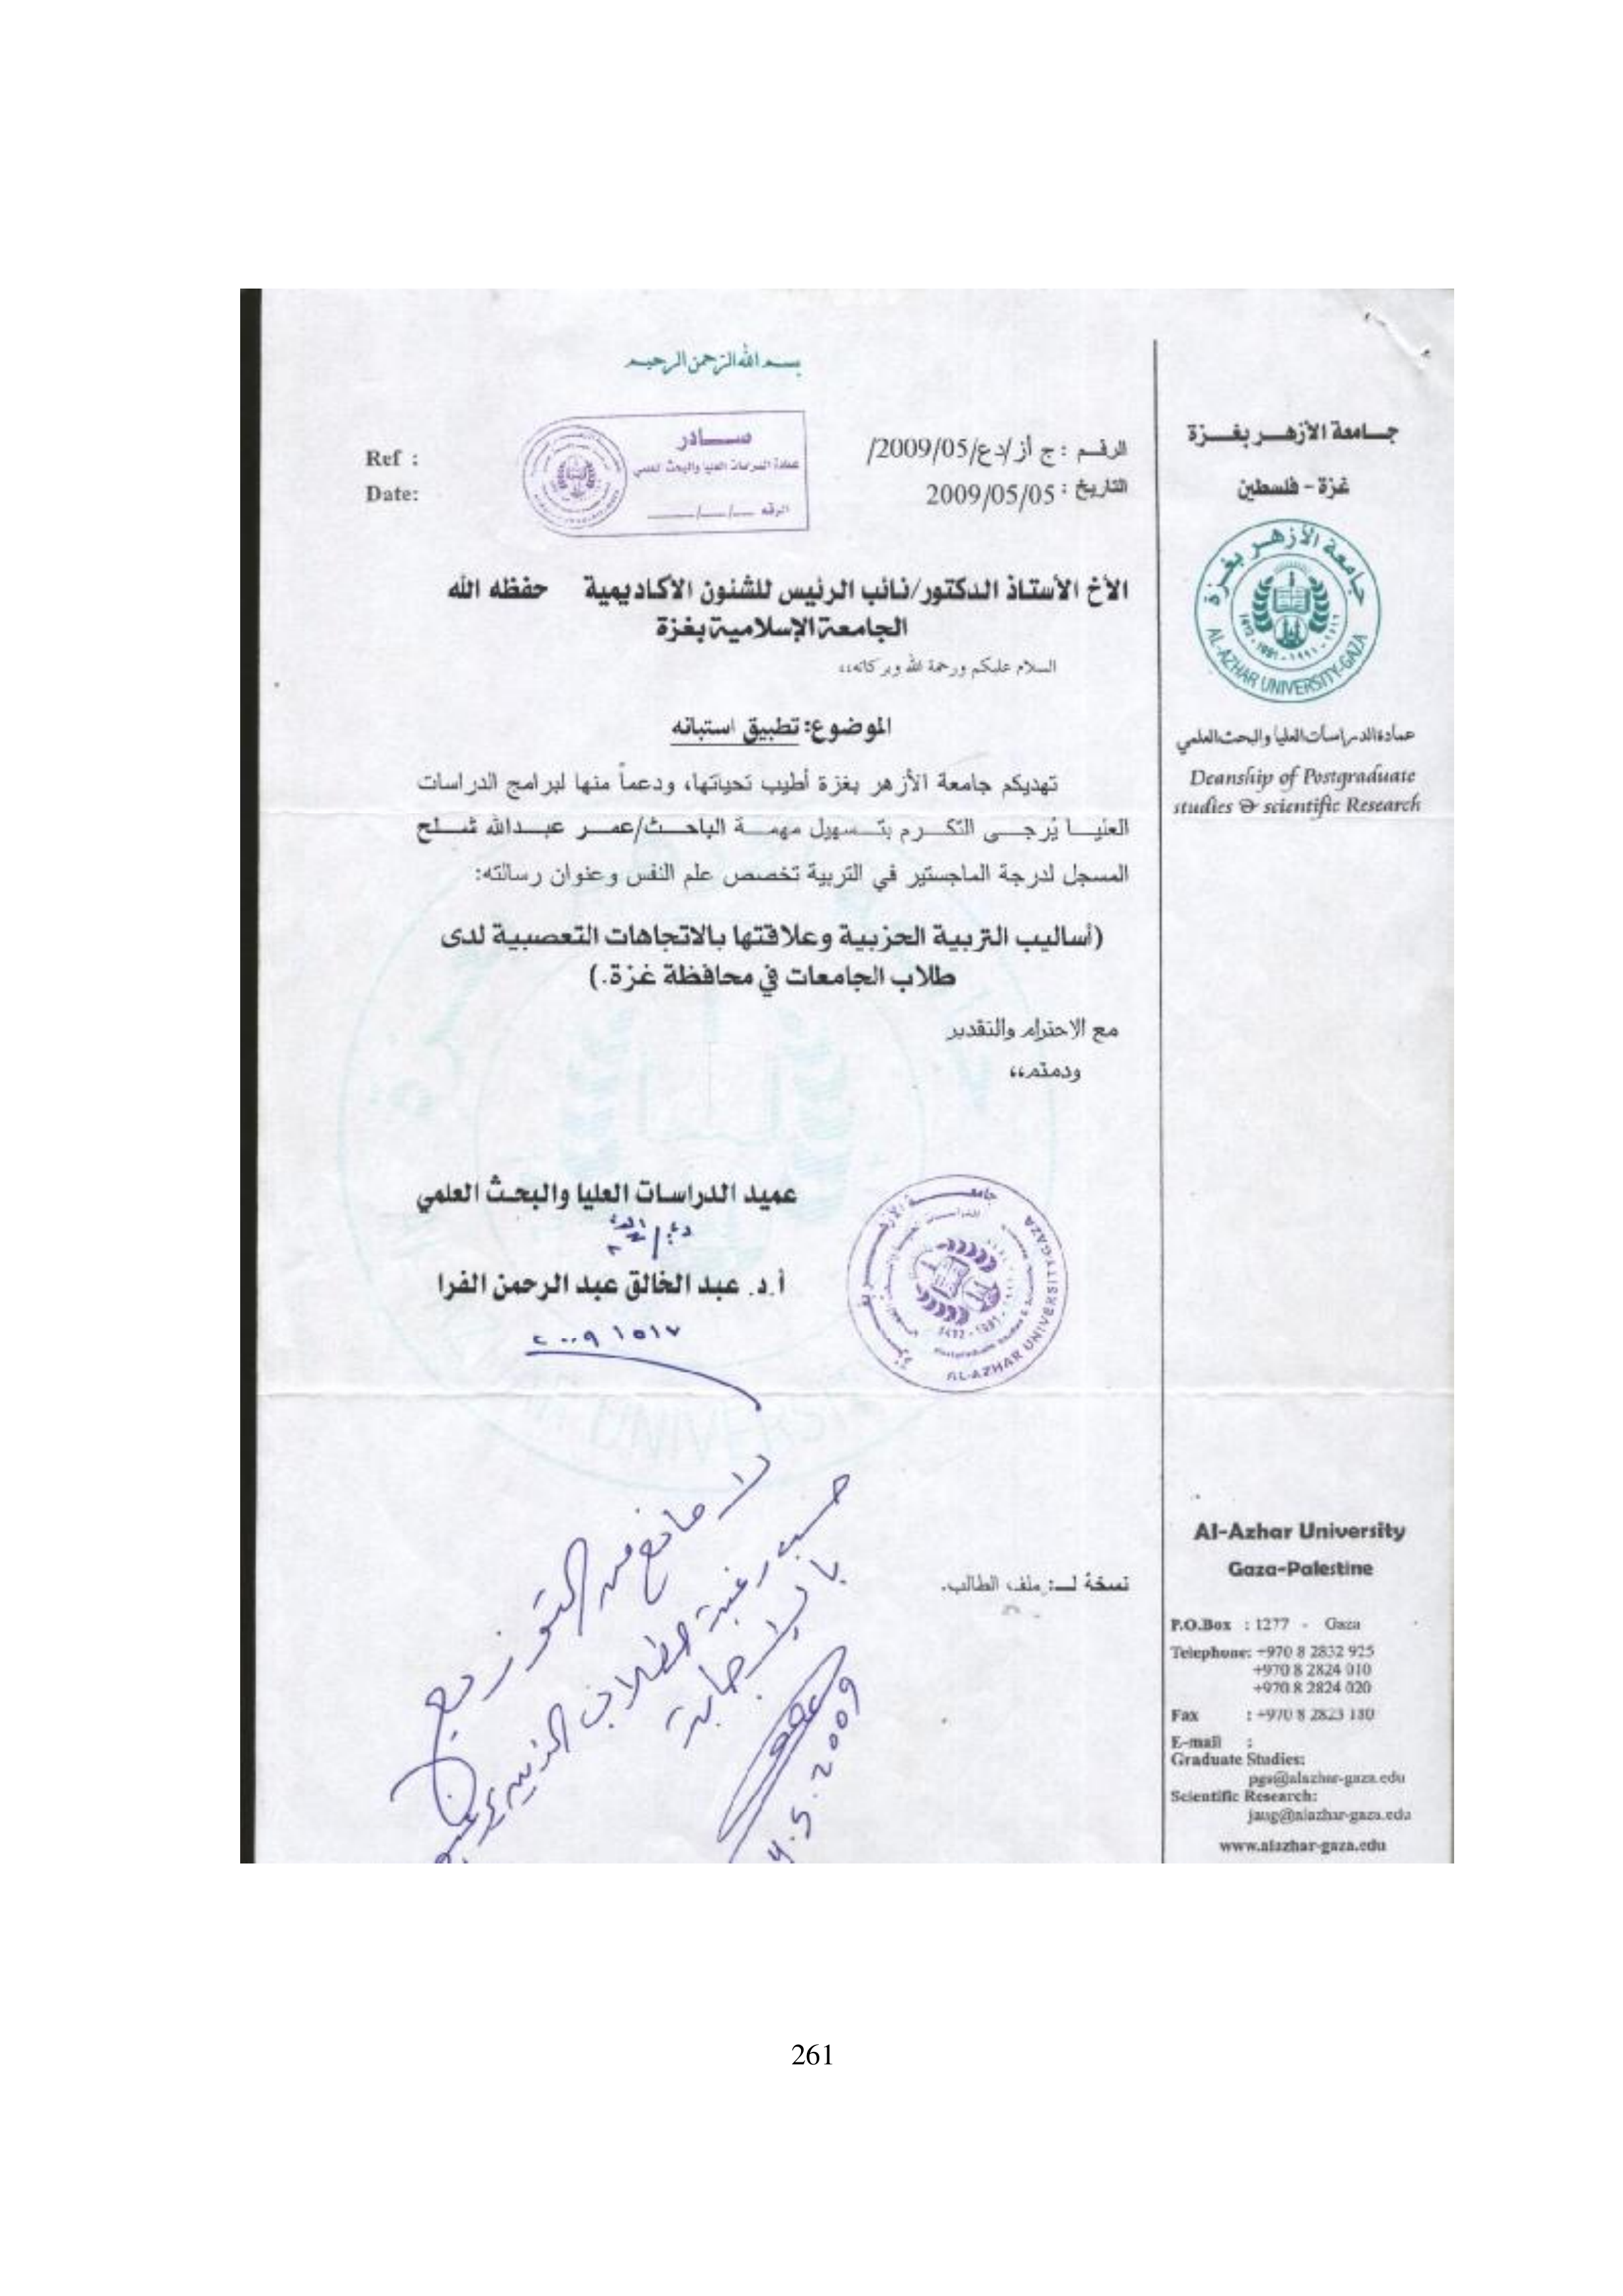 بسم الله الرحمن الرحيم
جامعة الأزهر بغزة
غزة - فلسطين
جامعة الأزهر بغزة
AL-AZHAR UNIVERSITY-GAZA
عمادة الدراسات العليا والبحث العلمي
Deanship of Postgraduate
studies & scientific Research
الرقم : ج أز/دع/2009/05/
التاريخ : 2009/05/05
صادر
عمادة الدراسات العليا والبحث العلمي
الرقم __/__/____
Ref :
Date:
الأخ الأستاذ الدكتور/نائب الرئيس للشئون الأكاديمية حفظه الله
الجامعة الإسلامية بغزة
السلام عليكم ورحمة الله وبركاته،،
الموضوع: تطبيق استبانه
تهديكم جامعة الأزهر بغزة أطيب تحياتها، ودعماً منها لبرامج الدراسات
العليا يُرجى التكرم بتسهيل مهمة الباحث/عمر عبدالله شلح
المسجل لدرجة الماجستير في التربية تخصص علم النفس وعنوان رسالته:
(أساليب التربية الحزبية وعلاقتها بالاتجاهات التعصبية لدى
طلاب الجامعات في محافظة غزة.)
مع الاحترام والتقدير
ودمتم،،
عميد الدراسات العليا والبحث العلمي
أ.د. عبد الخالق عبد الرحمن الفرا
AL-AZHAR UNIVERSITY-GAZA
لا مانع من
حسب رغبة الطلاب
بالإجابة
5.2009
نسخة لـ: ملف الطالب.
Al-Azhar University
Gaza-Palestine
P.O.Box : 1277 - Gaza
Telephone: +970 8 2832 925
+970 8 2824 010
+970 8 2824 020
Fax : +970 8 2823 180
E-mail :
Graduate Studies:
pgs@alazhar-gaza.edu
Scientific Research:
jaug@alazhar-gaza.edu
www.alazhar-gaza.edu
261